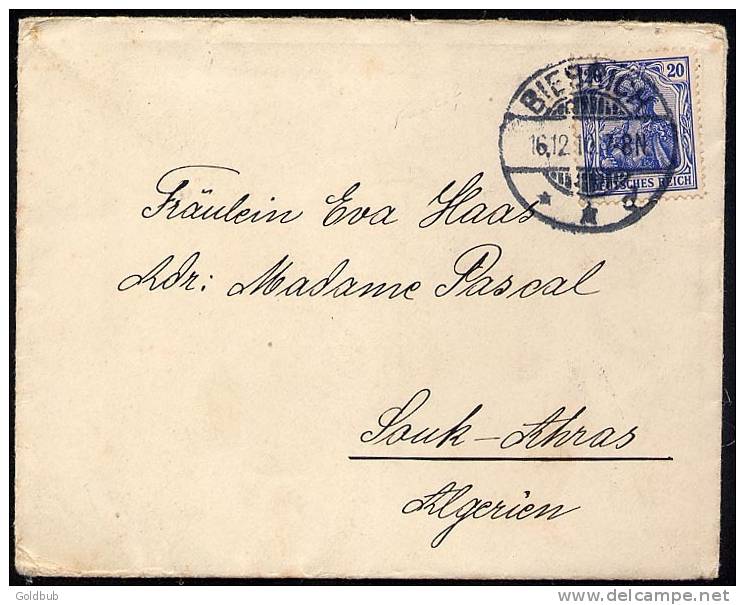 BIEBRICH
20
16.12.10.7-8N
* a
DEUTSCHES REICH
Fräulein Eva Haas
Adr: Madame Pascal
Souk-Ahras
Algerien
Goldbub
www.delcampe.net